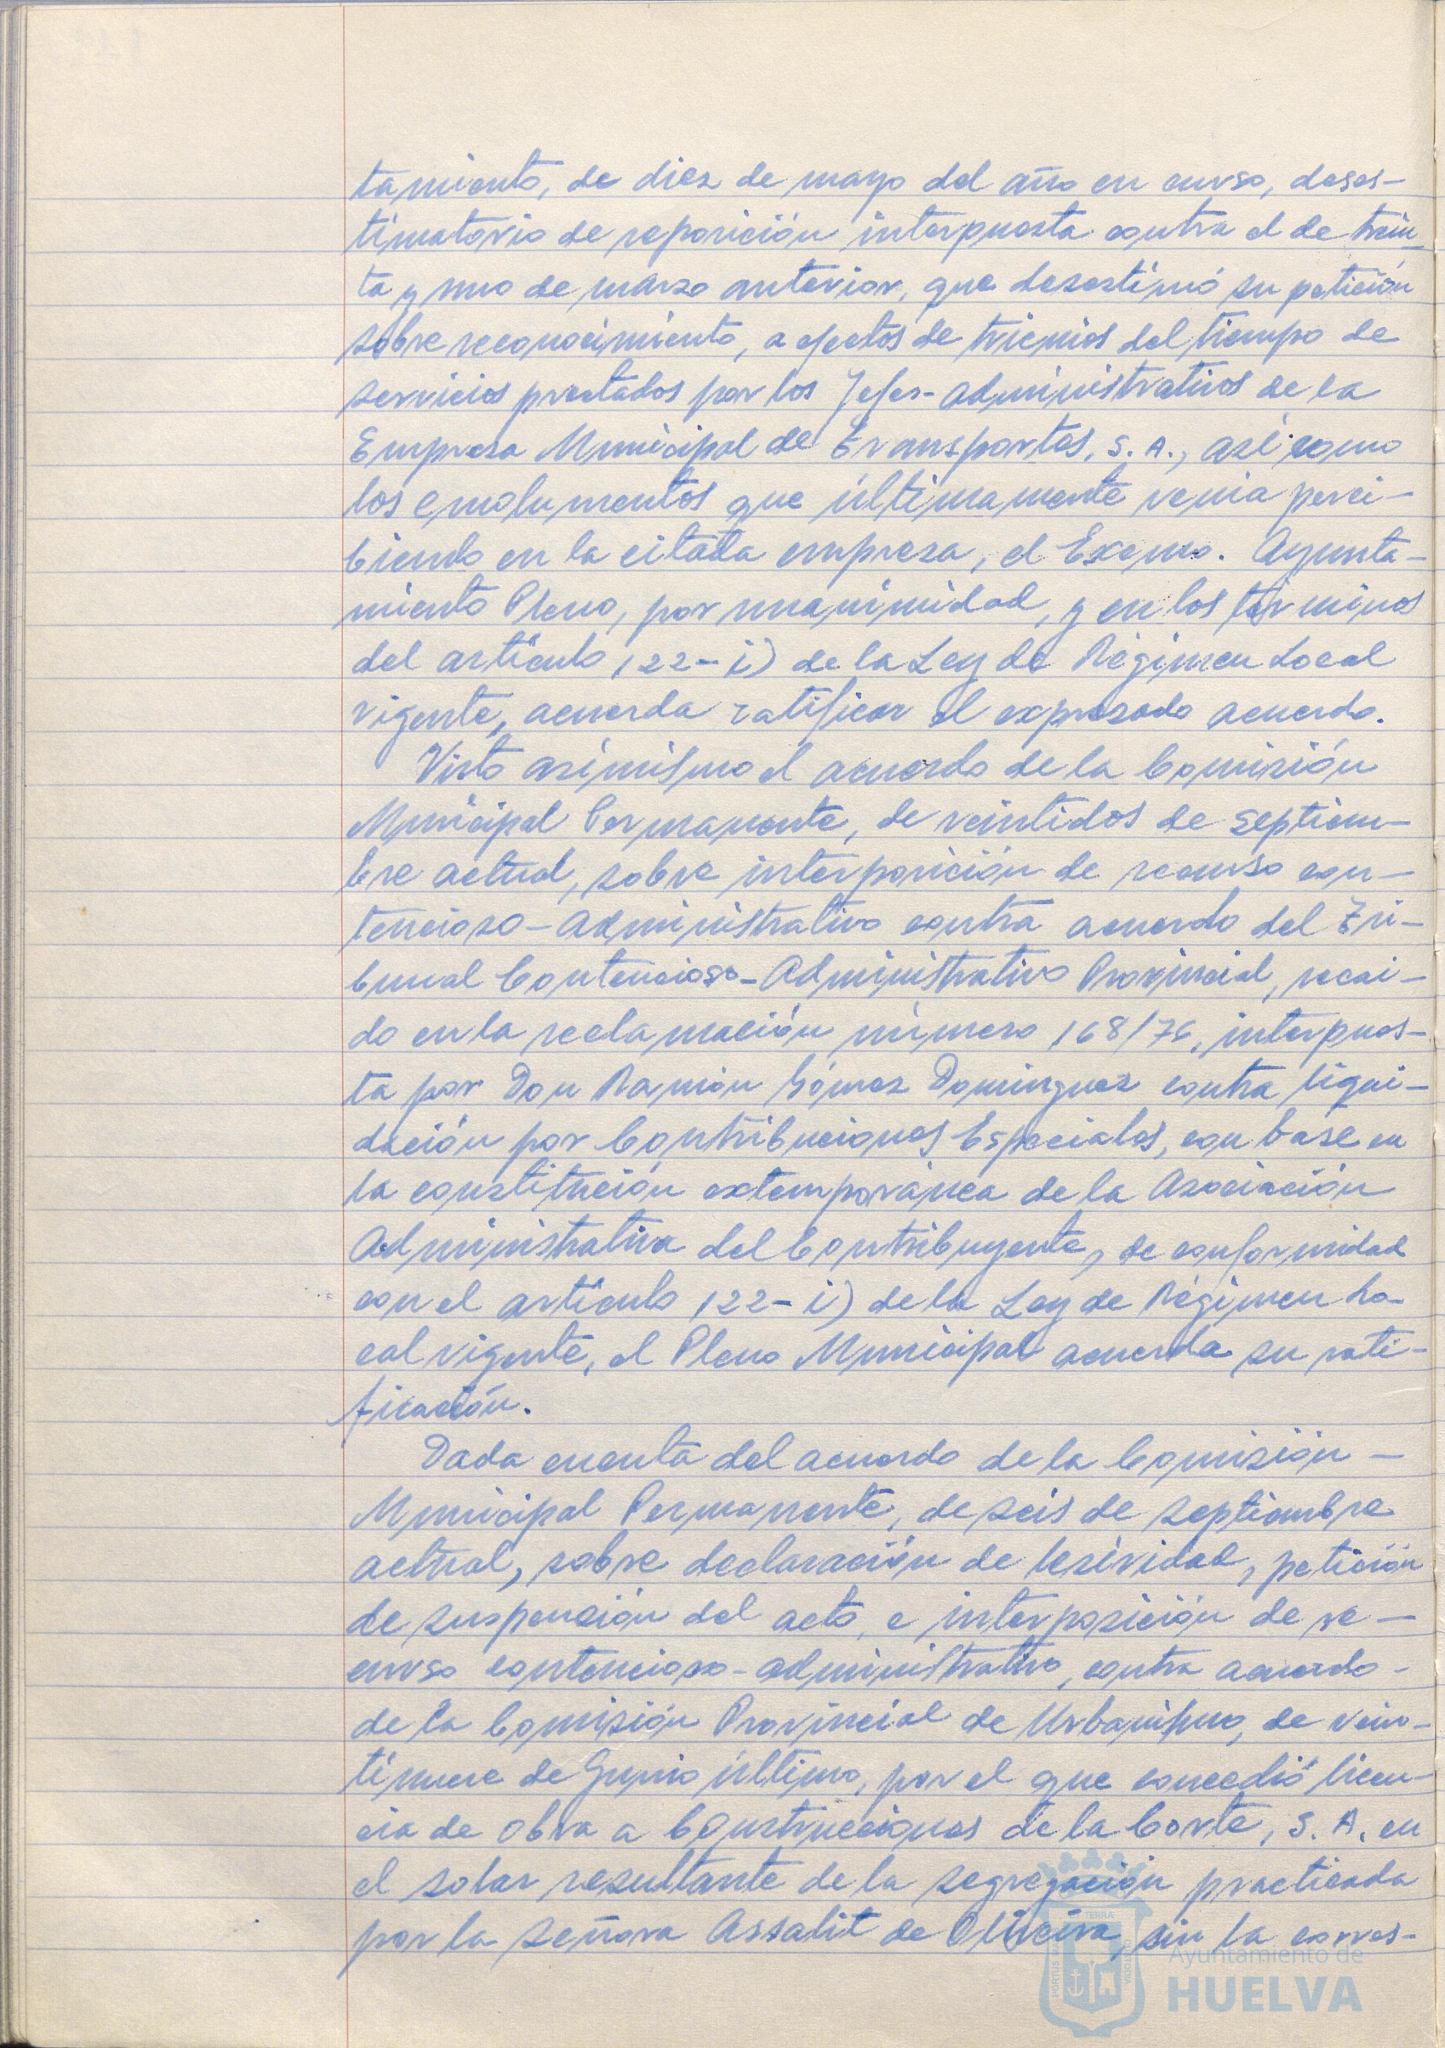 tamiento, de diez de mayo del año en curso, deses-
timatorio de reposición interpuesta contra el de trein-
ta y uno de marzo anterior, que desestimó su petición
sobre reconocimiento, a efectos de trienios del tiempo de
servicios prestados por los Jefes-Administrativos de la
Empresa Municipal de Transportes, S. A., así como
los emolumentos que últimamente venia perci-
biendo en la citada empresa, el Excmo. Ayunta-
miento Pleno, por unanimidad, y en los términos
del artículo 122-i) de la Ley de Régimen Local
vigente, acuerda ratificar el expresado acuerdo.
Visto asimismo el acuerdo de la Comisión
Municipal Permanente, de veintidos de septiem-
bre actual, sobre interposición de recurso con-
tencioso-administrativo contra acuerdo del Tri-
bunal Contencioso-Administrativo Provincial, recai-
do en la reclamación número 168/76, interpues-
ta por Don Ramón Gómez Dominguez contra liqui-
dación por Contribuciones Especiales, con base en
la constitución extemporánea de la Asociación
Administrativa del Contribuyente, de conformidad
con el artículo 122-i) de la Ley de Régimen Lo-
cal vigente, el Pleno Municipal acuerda su rati-
ficación.
Dada cuenta del acuerdo de la Comisión -
Municipal Permanente, de seis de septiembre
actual, sobre declaración de lesividad, petición
de suspensión del acto, e interposición de re-
curso contencioso-administrativo, contra acuerdo -
de la Comisión Provincial de Urbanismo, de vein-
tinueve de Junio último, por el que concedió licen-
cia de obra a Construcciones de la Corte, S. A. en
el solar resultante de la segregación practicada
por la señora Assalit de Oliveira, sin la corres-
Ayuntamiento de
HUELVA